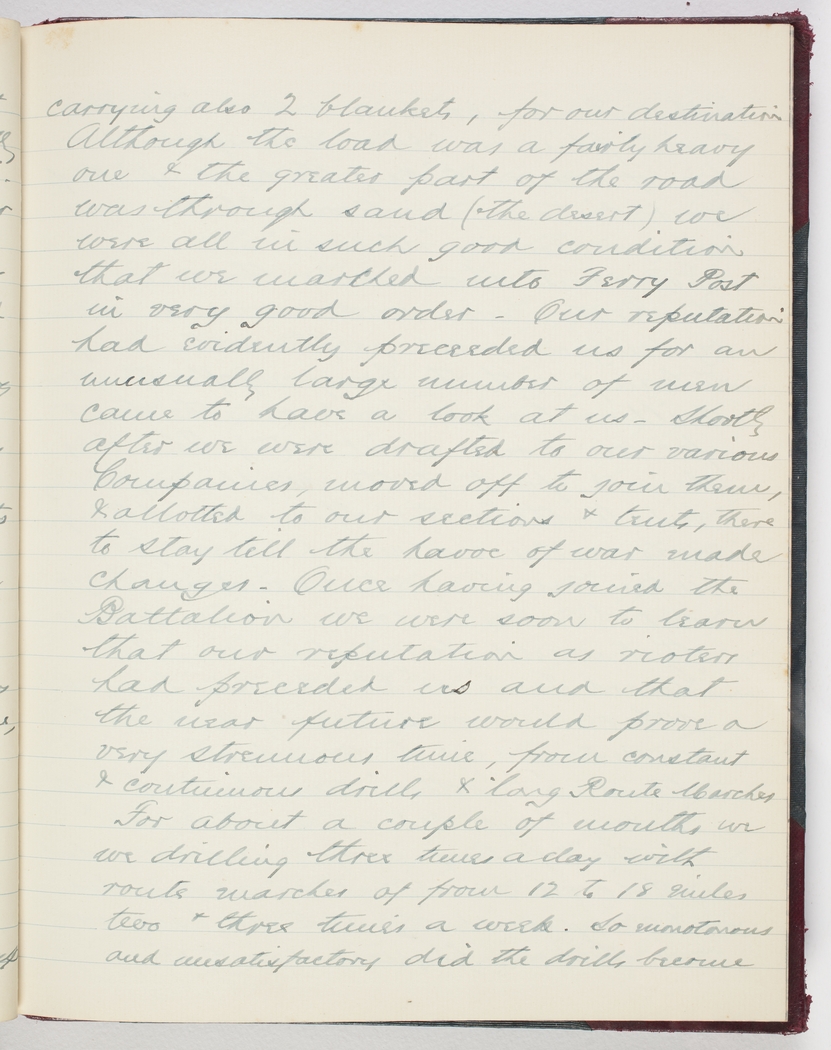 carrying also 2 blankets, for our destination
Although the load was a fairly heavy
one & the greater part of the road
was through sand (the desert) we
were all in such good condition
that we marched into Ferry Post
in very good order - Our reputation
had evidently preceeded us for an
unusually large number of men
came to have a look at us - Shortly
after we were drafted to our various
Companies, moved off to join them,
& allotted to our sections & tents, there
to stay till the havoc of war made
changes - Once having joined the
Battalion we were soon to learn
that our reputation as rioters
had preceded us and that
the near future would prove a
very strenuous time, from constant
& continuous drills & long Route Marches
For about a couple of months we
we drilling three times a day with
route marches of from 12 to 18 miles
two & three times a week. So monotonous
and unsatisfactory did the drills become